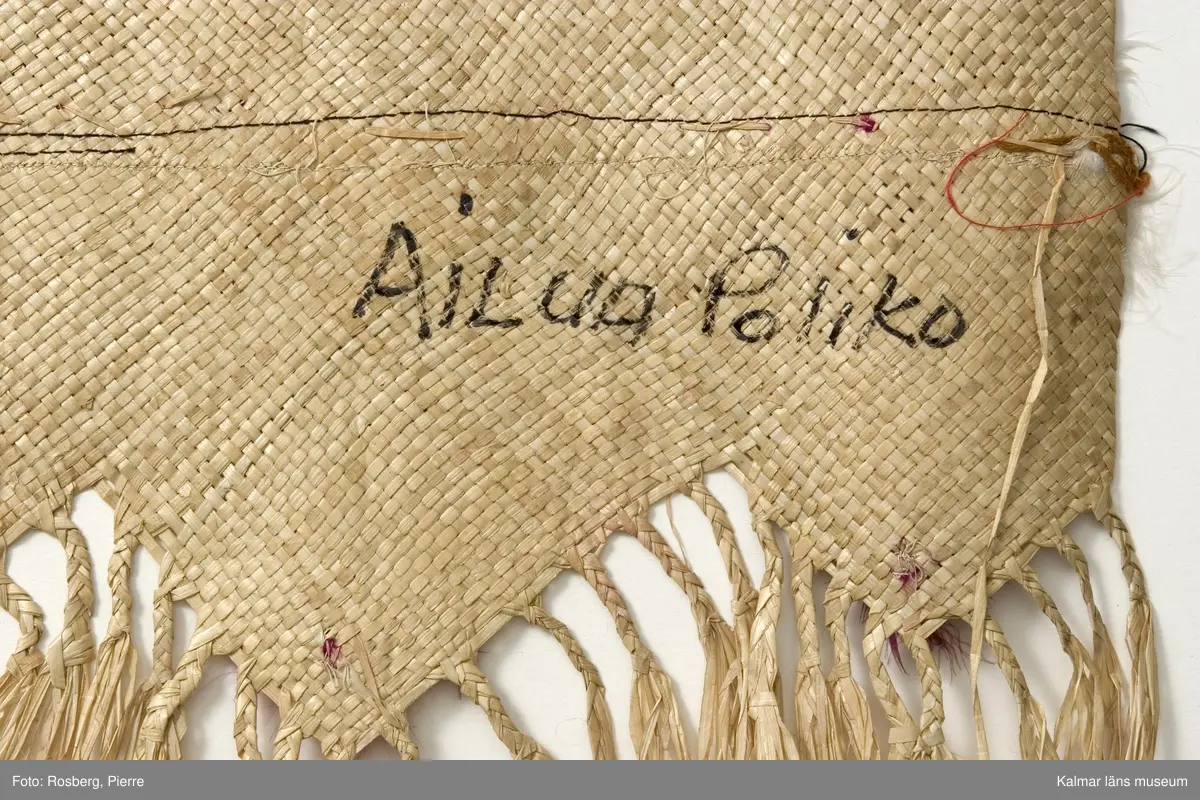 AiLua Poliko
Foto: Rosberg, Pierre
Kalmar läns museum